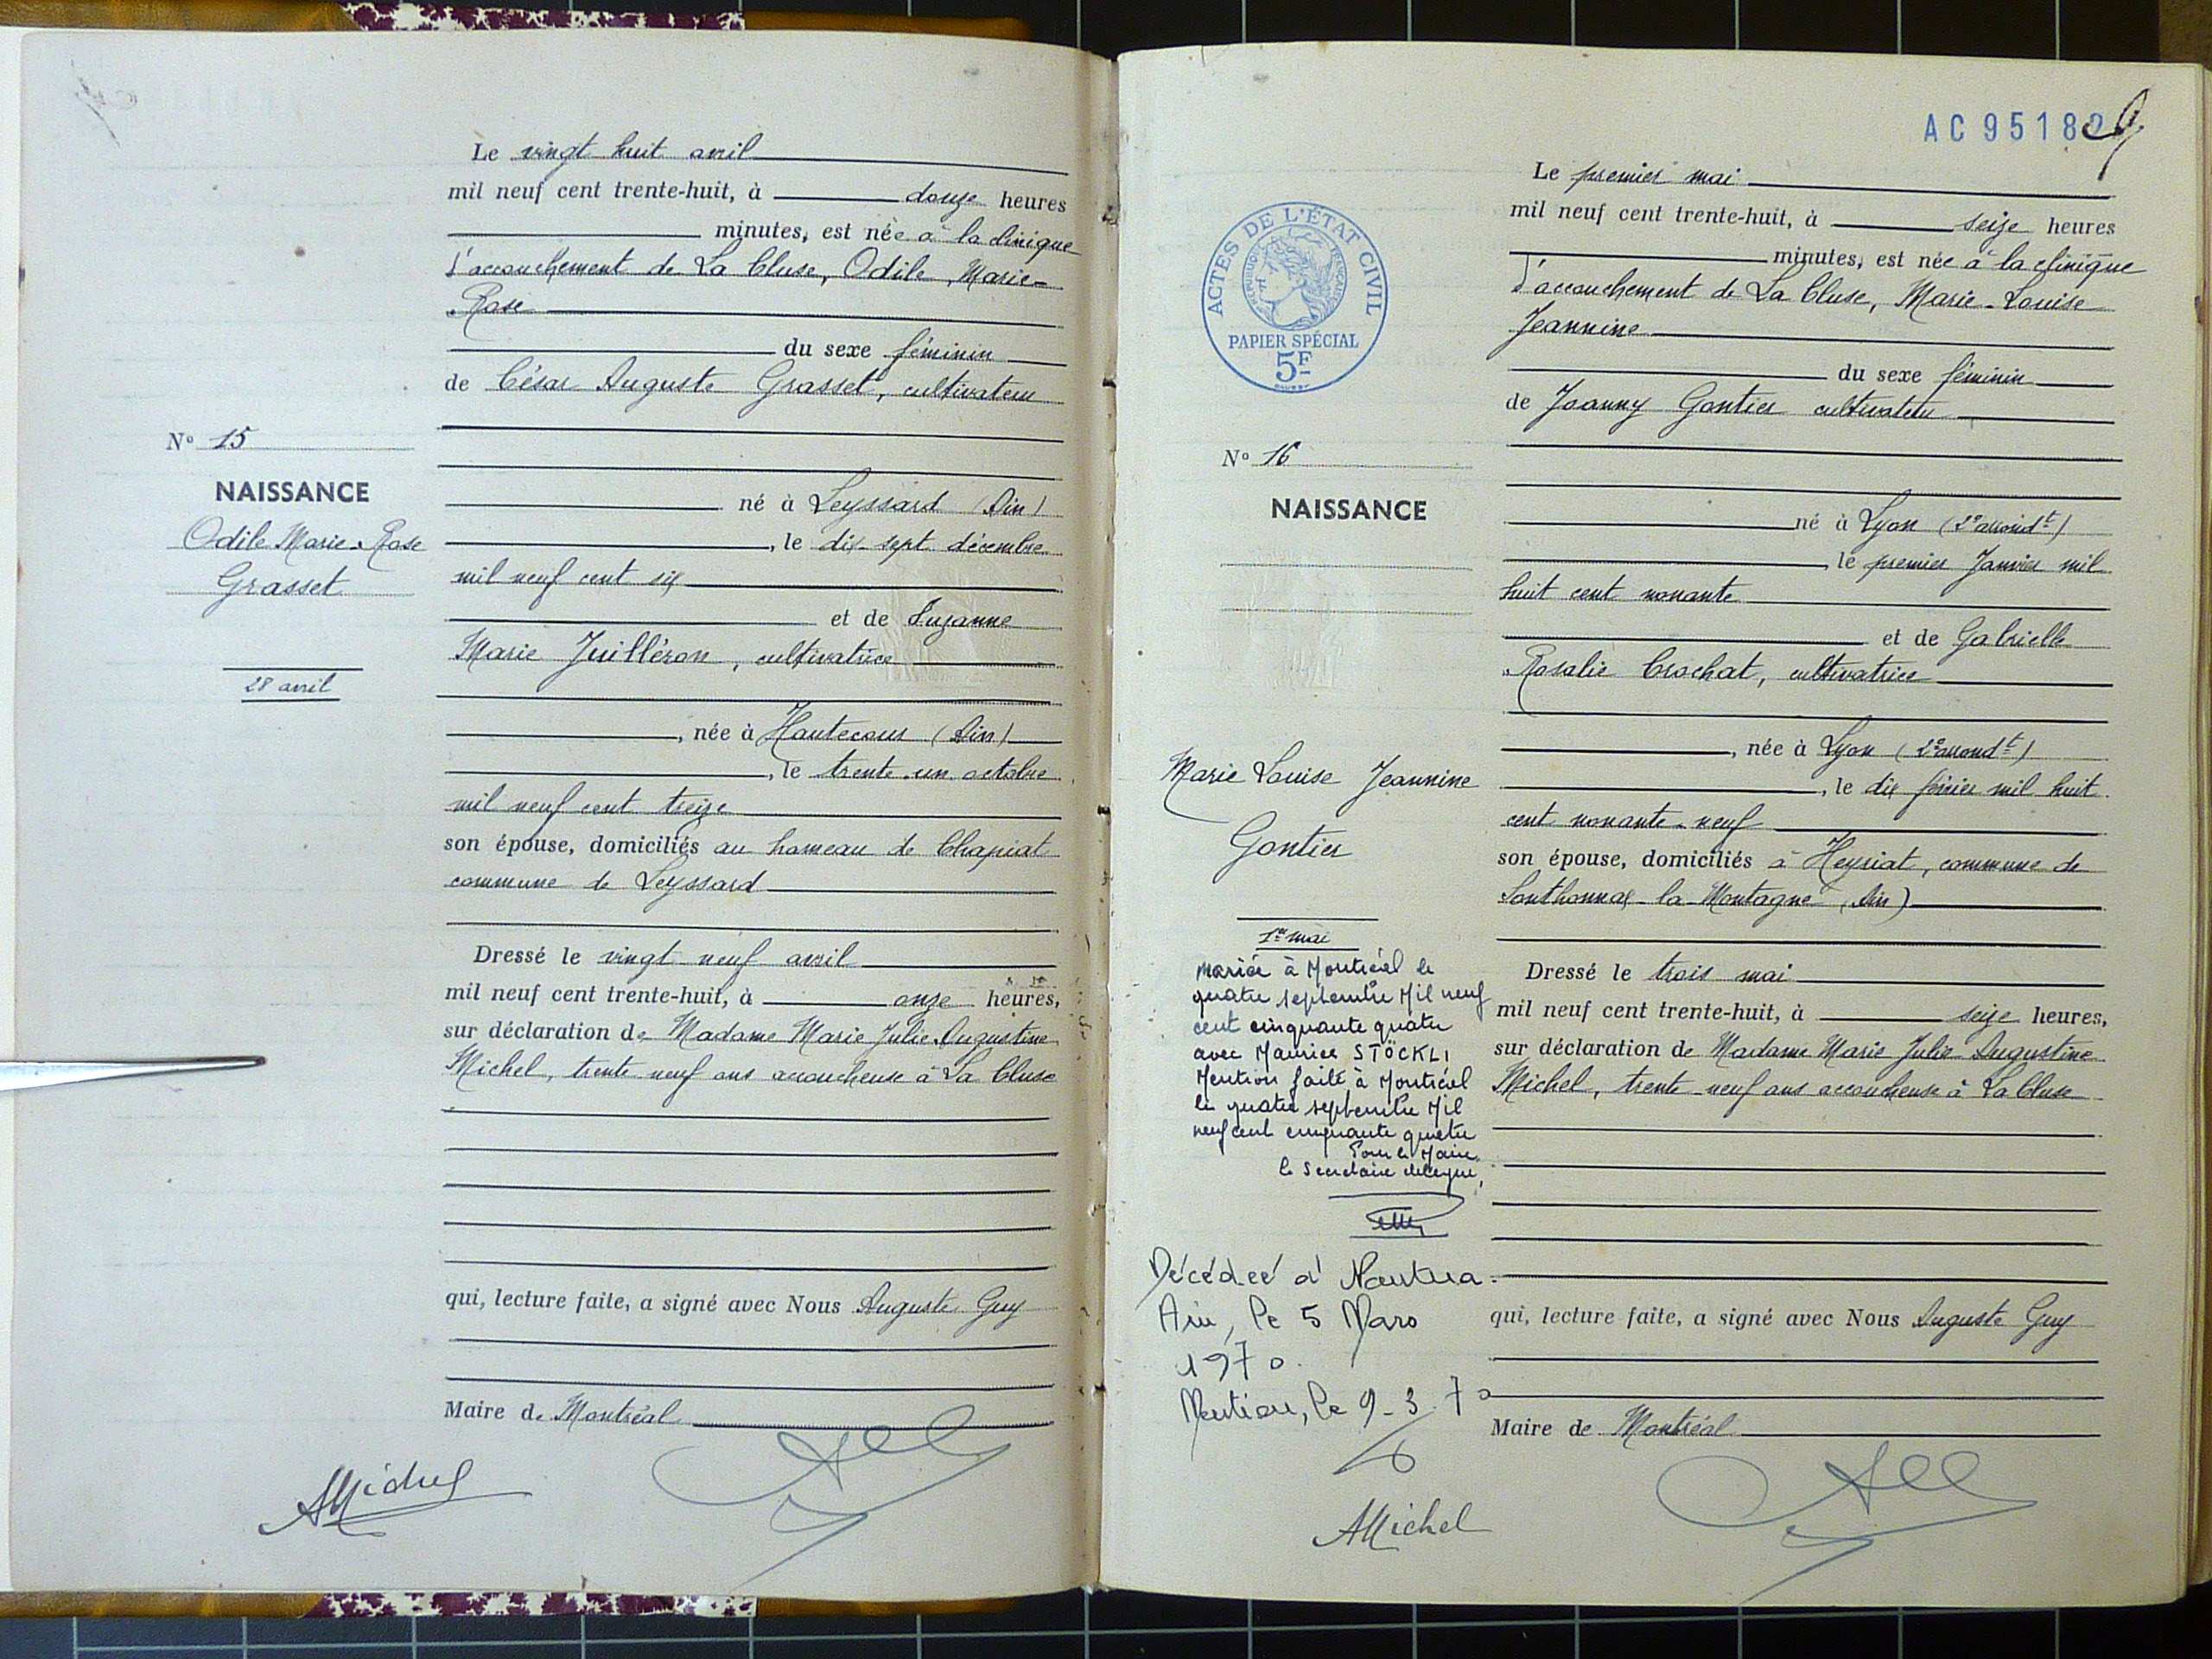 Le vingt huit avril
mil neuf cent trente-huit, à douze heures
minutes, est née à la clinique
d'accouchement de La Cluse, Odile, Marie-
Rose
du sexe féminin
de César Auguste Grasset, cultivateur
né à Leyssard (Ain)
, le dix-sept décembre
mil neuf cent six
et de Suzanne
Marie Juilléron, cultivatrice
, née à Hautecour (Ain)
, le trente-un octobre
mil neuf cent treize
son épouse, domiciliés au hameau de Chapiat
commune de Leyssard
Dressé le vingt neuf avril
mil neuf cent trente-huit, à onze heures,
sur déclaration de Madame Marie Julie Augustine
Michel, trente neuf ans accoucheuse à La Cluse
qui, lecture faite, a signé avec Nous Auguste Guy
Maire de Montréal
AMichel
N° 15
NAISSANCE
Odile Marie-Rose
Grasset
28 avril
AC 9518
9
ACTES DE L'ÉTAT CIVIL
RÉPUBLIQUE FRANÇAISE
PAPIER SPÉCIAL
5F
N° 16
NAISSANCE
Marie Louise Jeannine
Gontier
1er mai
mariée à Montréal le
quatre septembre Mil neuf
cent cinquante quatre
avec Maurice STÖCKLI
Mention faite à Montréal
le quatre septembre Mil
neuf cent cinquante quatre
Pour le Maire,
le Secrétaire délégué,
Décédée à Nantua
Ain, le 5 Mars
1970.
Mention, le 9-3.70
AMichel
Le premier mai
mil neuf cent trente-huit, à seize heures
minutes, est née à la clinique
d'accouchement de La Cluse, Marie-Louise
Jeannine
du sexe féminin
de Joanny Gontier cultivateur
né à Lyon (2e arrondt)
, le premier Janvier mil
huit cent nonante
et de Gabrielle
Rosalie Crochat, cultivatrice
, née à Lyon (2e arrondt)
, le dix février mil huit
cent nonante-neuf
son épouse, domiciliés à Heyriat, commune de
Sonthonnax-la-Montagne (Ain)
Dressé le trois mai
mil neuf cent trente-huit, à seize heures,
sur déclaration de Madame Marie Julie Augustine
Michel, trente-neuf ans accoucheuse à La Cluse
qui, lecture faite, a signé avec Nous Auguste Guy
Maire de Montréal